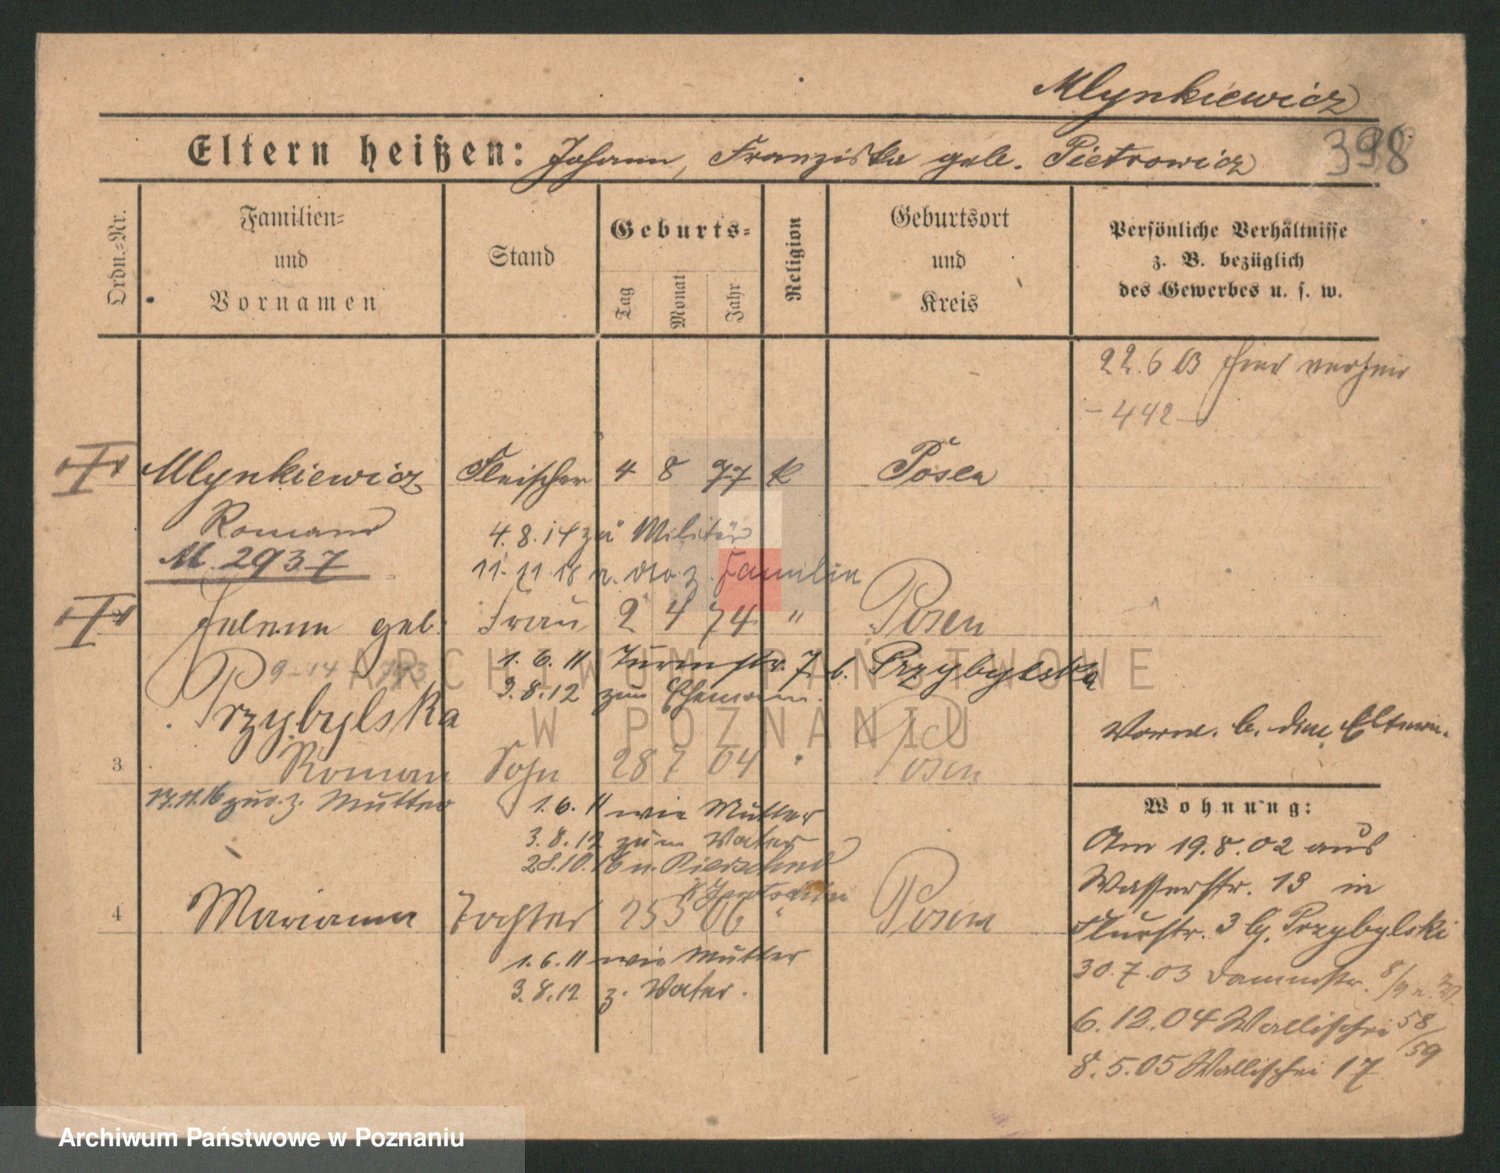 Mlynkiewicz
398
Eltern heißen: Johann, Franziska geb. Pietrowicz
Ordn.-Nr.
Familien-
und
Vornamen
Stand
Geburts-
Tag
Monat
Jahr
Religion
Geburtsort
und
Kreis
Persönliche Verhältnisse
z. B. bezüglich
des Gewerbes u. s. w.
22.6 03 hier
- 442 -
Mlynkiewicz Fleischer 4 8 77 k Posen
Roman
4.8.14 zu Militär
M. 2937
11.11.18 Familie
Helene geb. Frau 2 4 74 " Posen
1.6.11 Turmstr. 7 b. Przybylska
3.8.12 zum Ehemann.
Przybylska
Vorm. b. den Eltern.
3 Roman Sohn 28 7 04 " Posen
17.11.16 zur. z. Mutter
1.6.11 wie Mutter
3.8.12 zum Vater
28.10.16 n.
4 Marianna Tochter 25 5 06 " Posen
1.6.11 wie Mutter
3.8.12 z. Vater.
Wohnung:
Am 19.8.02 aus
Wasserstr. 13 in
Flurstr. 3 bj. Przybylski
30.7.03 Dammstr. 8/9
6.12.04 Wallischei 58/59
8.5.05 Wallischei 17
ARCHIWUM PAŃSTWOWE
W POZNANIU
Archiwum Państwowe w Poznaniu